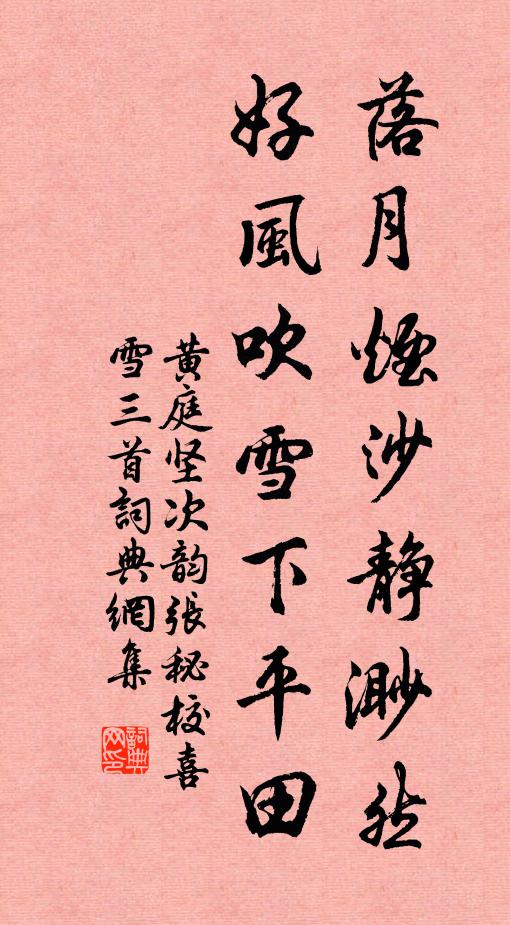 落月煙沙靜渺然
好風吹雪下平田
黄庭坚次韵張秘校喜
雪三首詞典網集
詞典网印